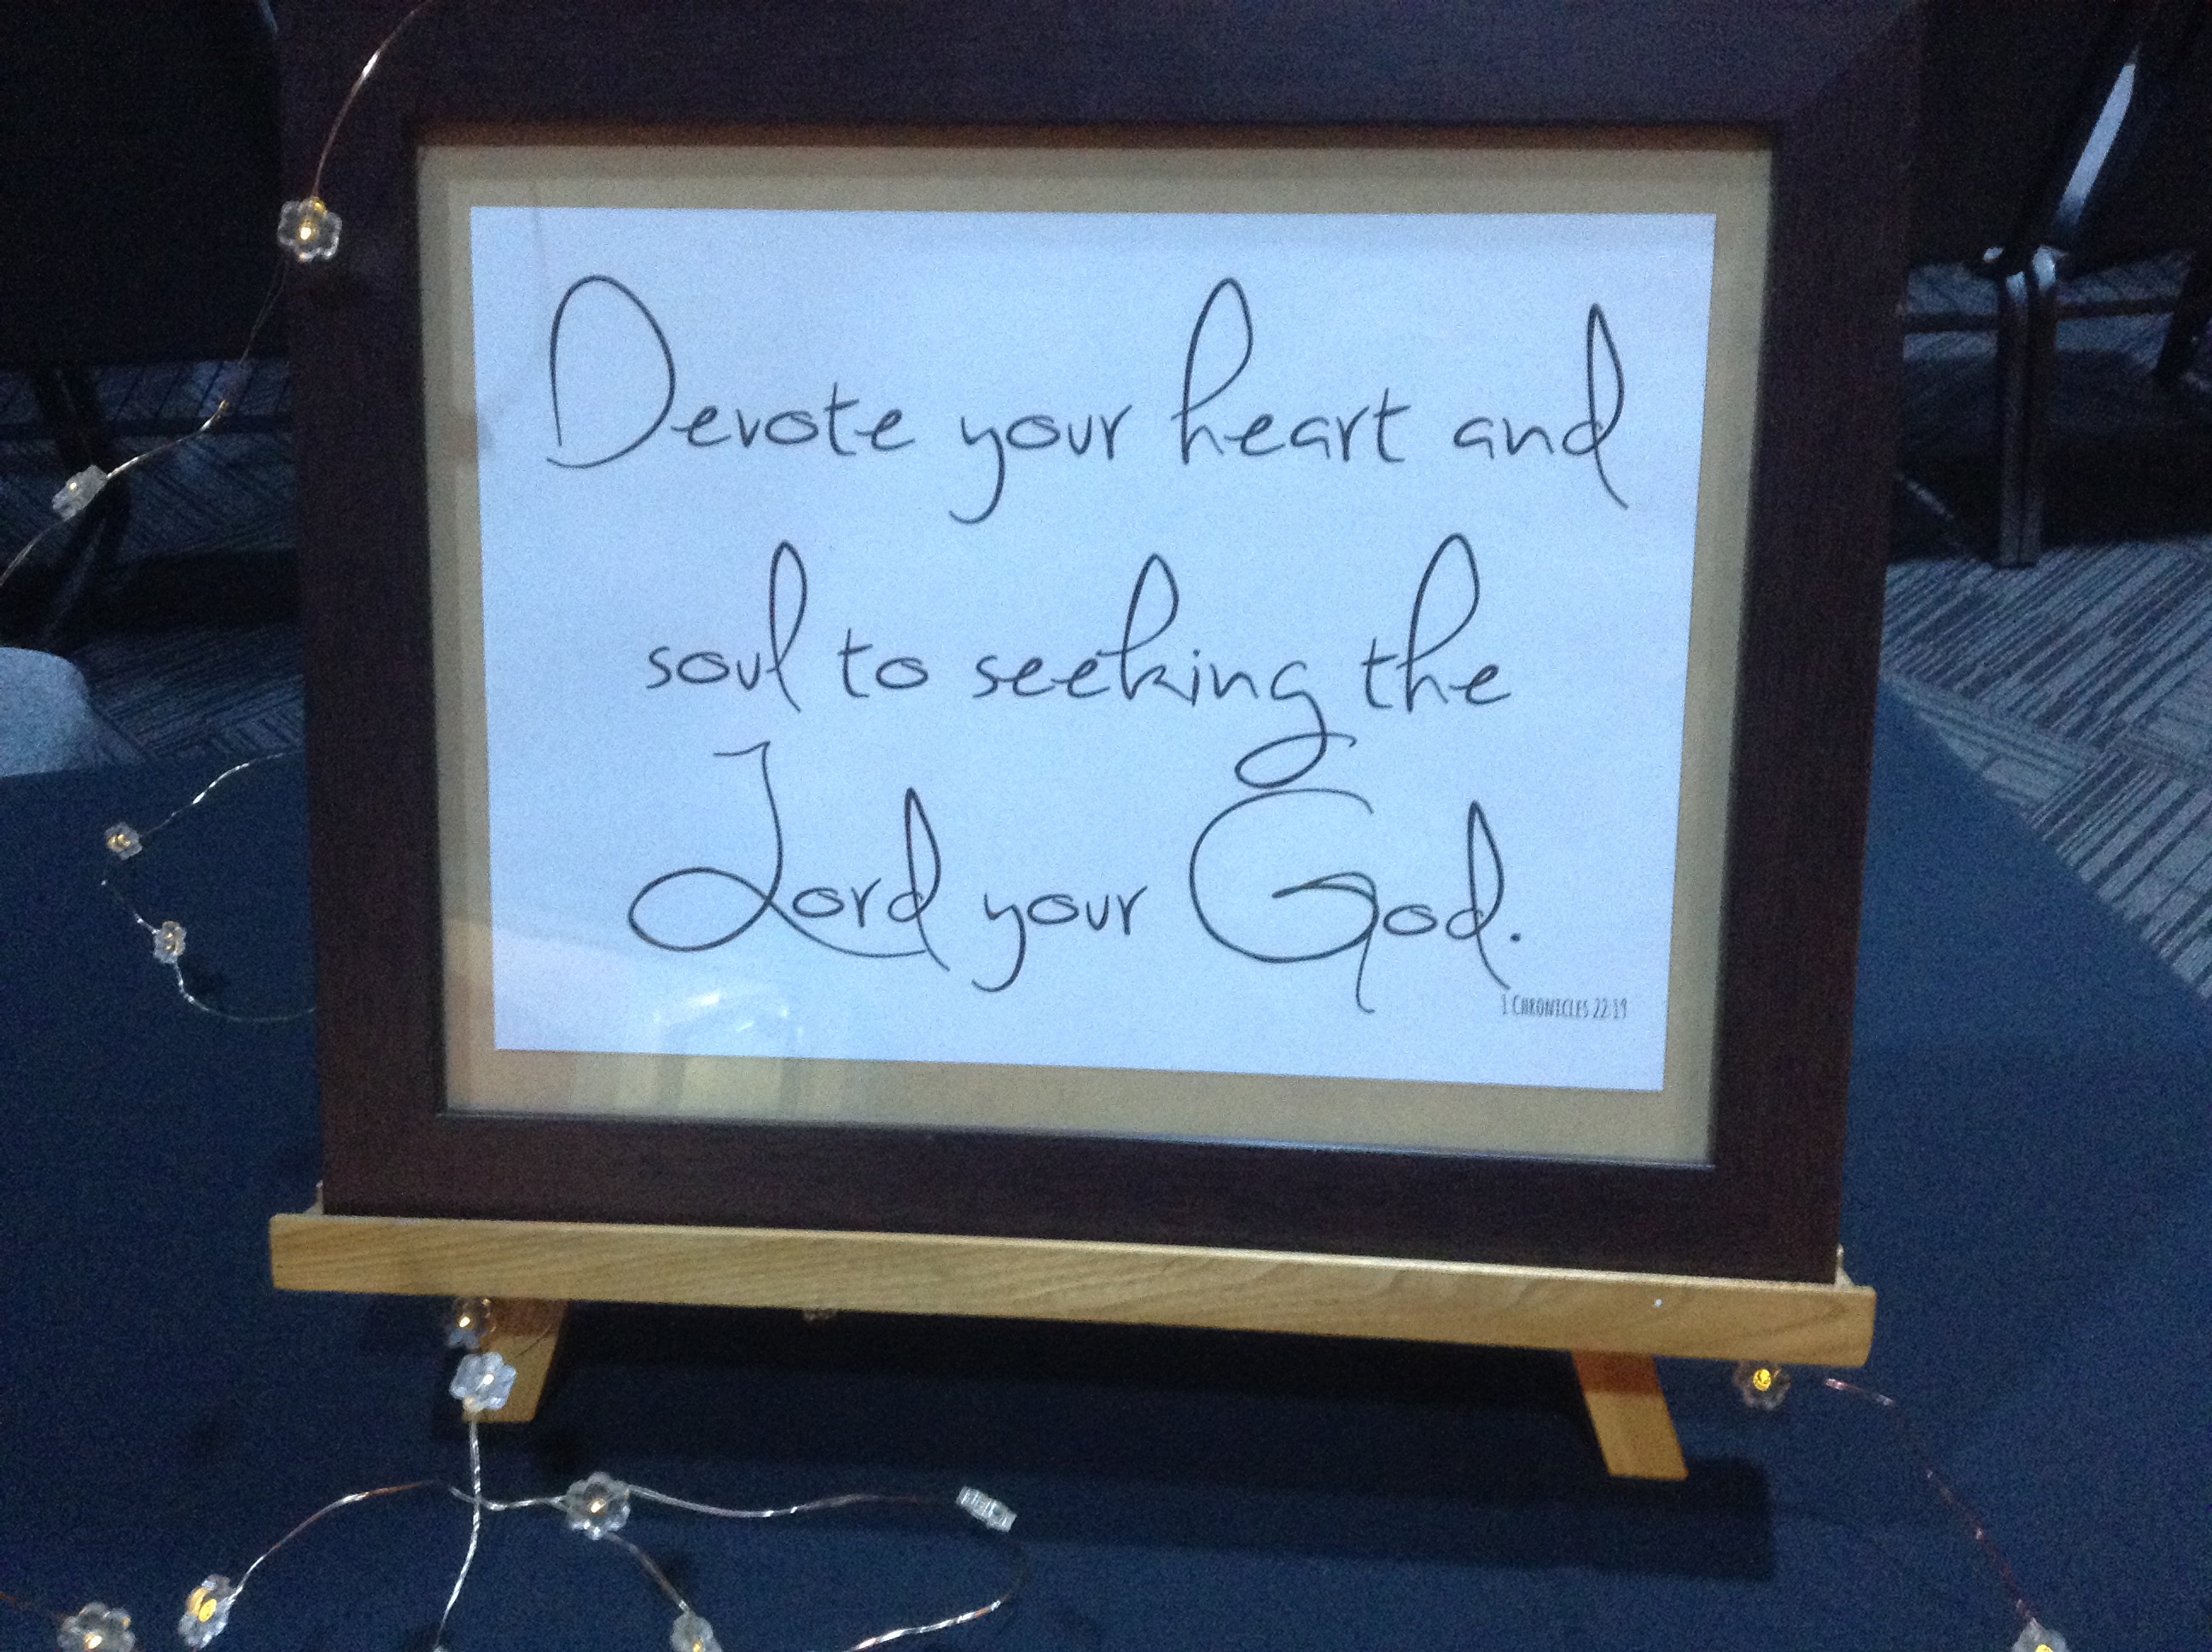 Devote your heart and
soul to seeking the
Lord your God.
1 CHRONICLES 22:19